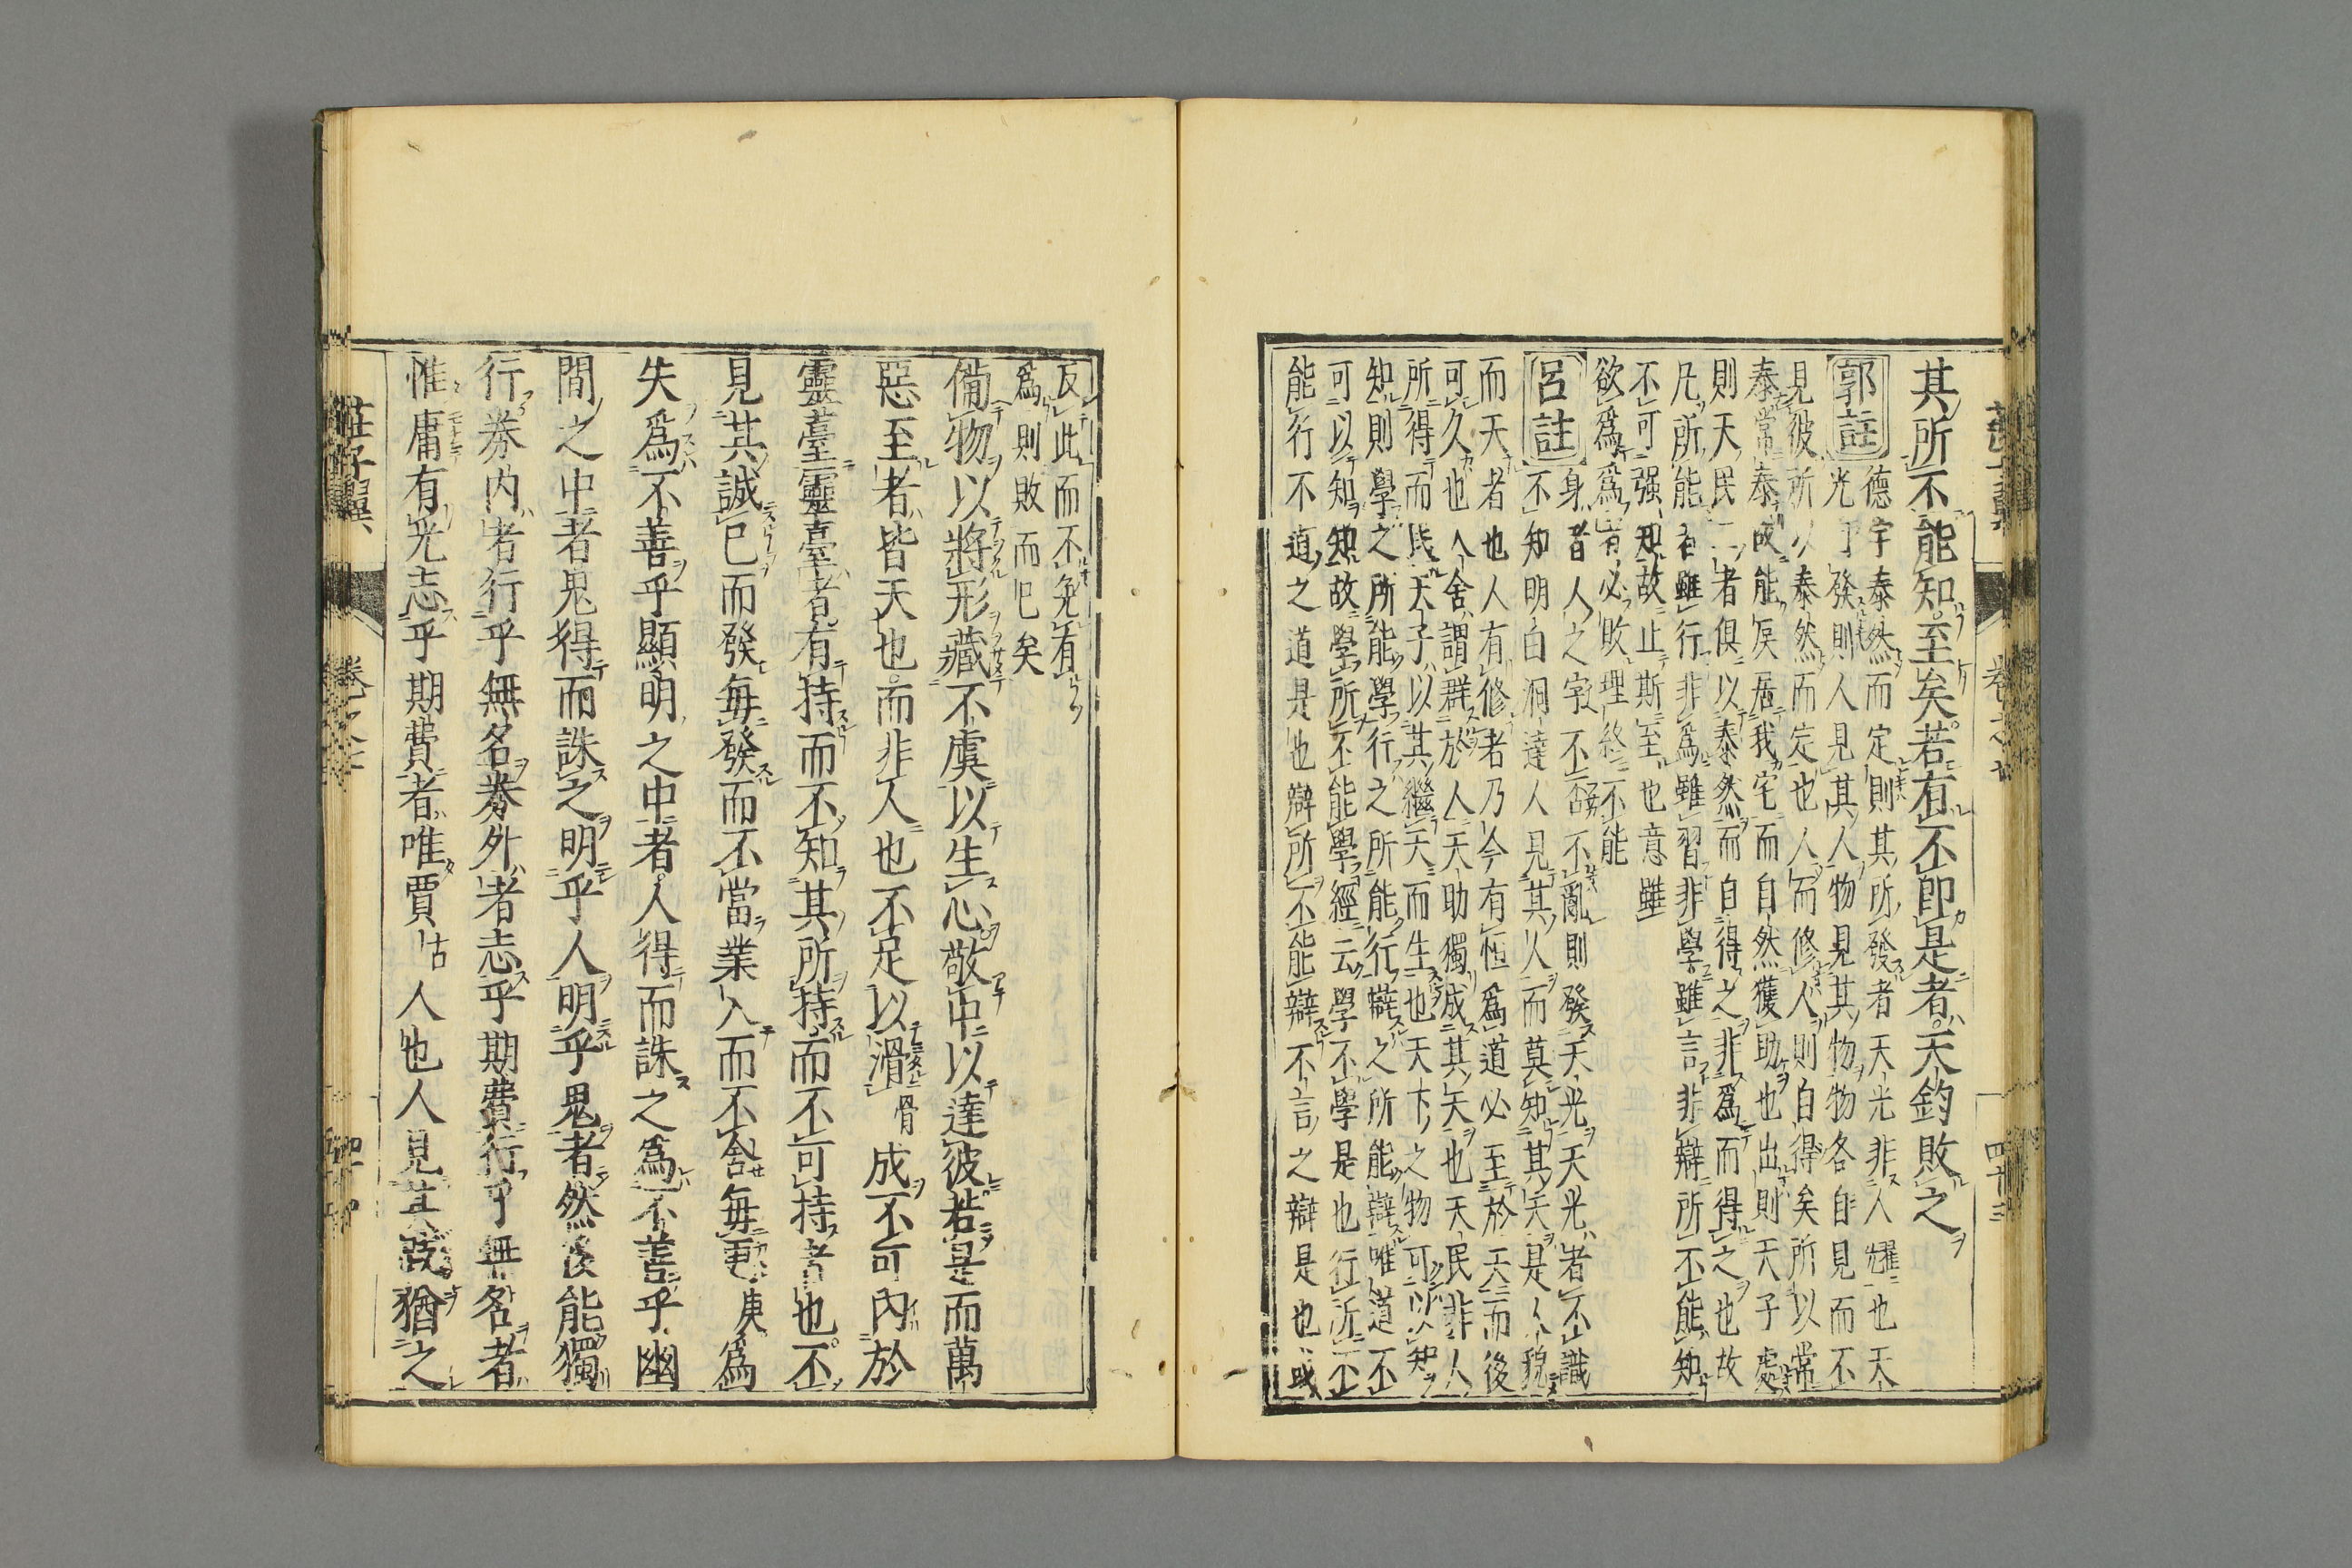 其所不能知至矣若有不即是者天鈞敗之
郭註
德宇泰然而定則其所發者天光非人耀也天
光自發則人見其人物見其物物各自見而不
見彼所以泰然而定也人而修人則自得矣所以常
泰常泰故能反居我宅而自然獲助也出則天子處
則天民二者俱以泰然而自得之非爲而得之也故
凡所能者雖行非爲雖習非學雖言非辯所不能知
不可强知故止斯至也意雖
欲爲爲者必敗理終不能
呂註
身者人之宇不奓不亂則發天光天光者不識
不知明白洞達人見其人而莫知其天是人貌
而天者也人有修者乃今有恒爲道必至於天而後
可久也人舍謂群於人天助獨成其天也天民非人
所得而民天子以其繼天而生也天下之物可以知
知則學之所能學行之所能行辯之所能辯唯道不
可以知知故學所不能學經云學不學是也行所不
能行不道之道是也辯所不能辯不言之辯是也或
反此而不免有
爲則敗而已矣
備物以將形藏不虞以生心敬中以達彼若是而萬
惡至者皆天也而非人也不足以滑骨成不可內於
靈臺靈臺者有持而不知其所持而不可持者也不
見其誠已而發每發而不當業入而不舍每更庚爲
失爲不善乎顯明之中者人得而誅之爲不善乎幽
間之中者鬼得而誅之明乎人明乎鬼者然後能獨
行券內者行乎無名券外者志乎期費行乎無名者
惟庸有光志乎期費者唯賈古人也人見其跂猶之
莊子翼